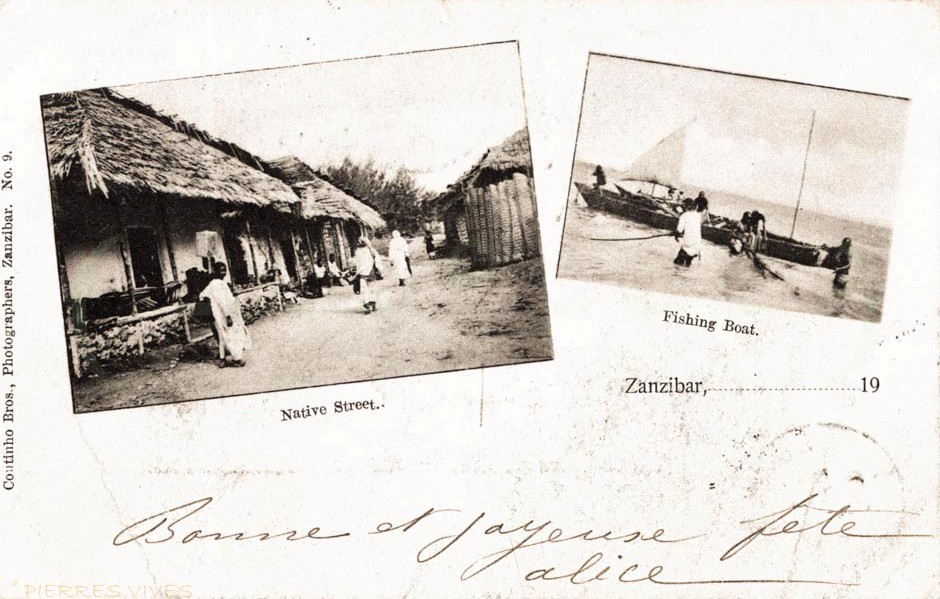 Coutinho Bros., Photographers, Zanzibar. No. 9.
Native Street..
Fishing Boat.
Zanzibar, 19
Bonne et joyeuse fête
alice
PIERRES.VIVES